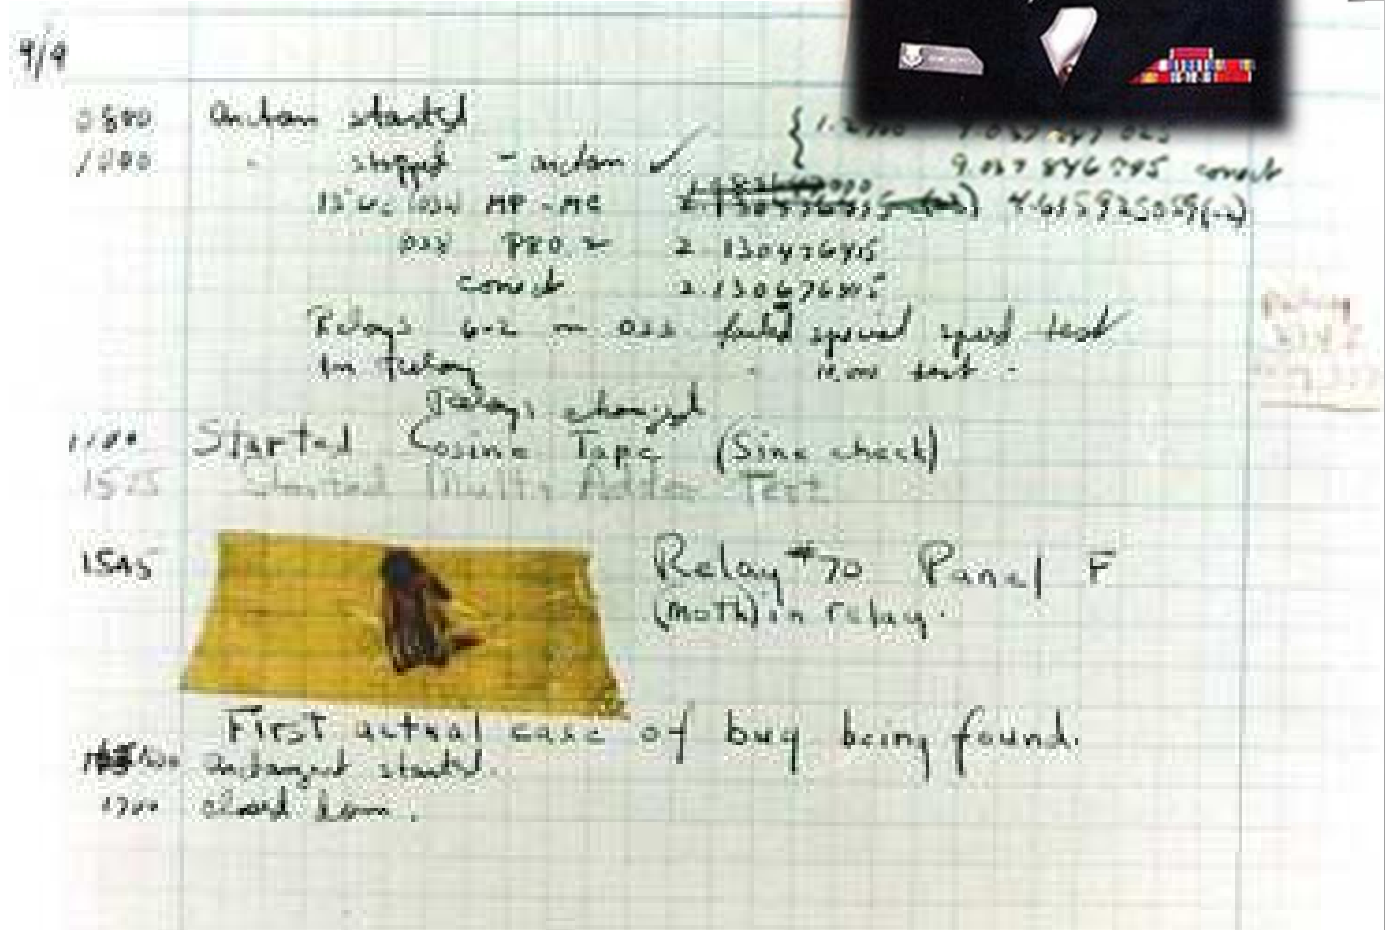 9/9
0800 Antan started
1000 " stopped - antan ✓ { 1.2700 9.037 847 025
9.037 846 795 correct
MP - MC 2.130476415 4.615925059(-2)
033 PRO 2 2.130476415
correct 2.130676415
Relays 6-2 in 033 failed special speed test
in relay " 10.000 test .
Relays changed
1100 Started Cosine Tape (Sine check)
1525 Started Multi Adder Test
1545 Relay #70 Panel F
(moth) in relay.
First actual case of bug being found.
1630 antangent started.
1700 closed down.